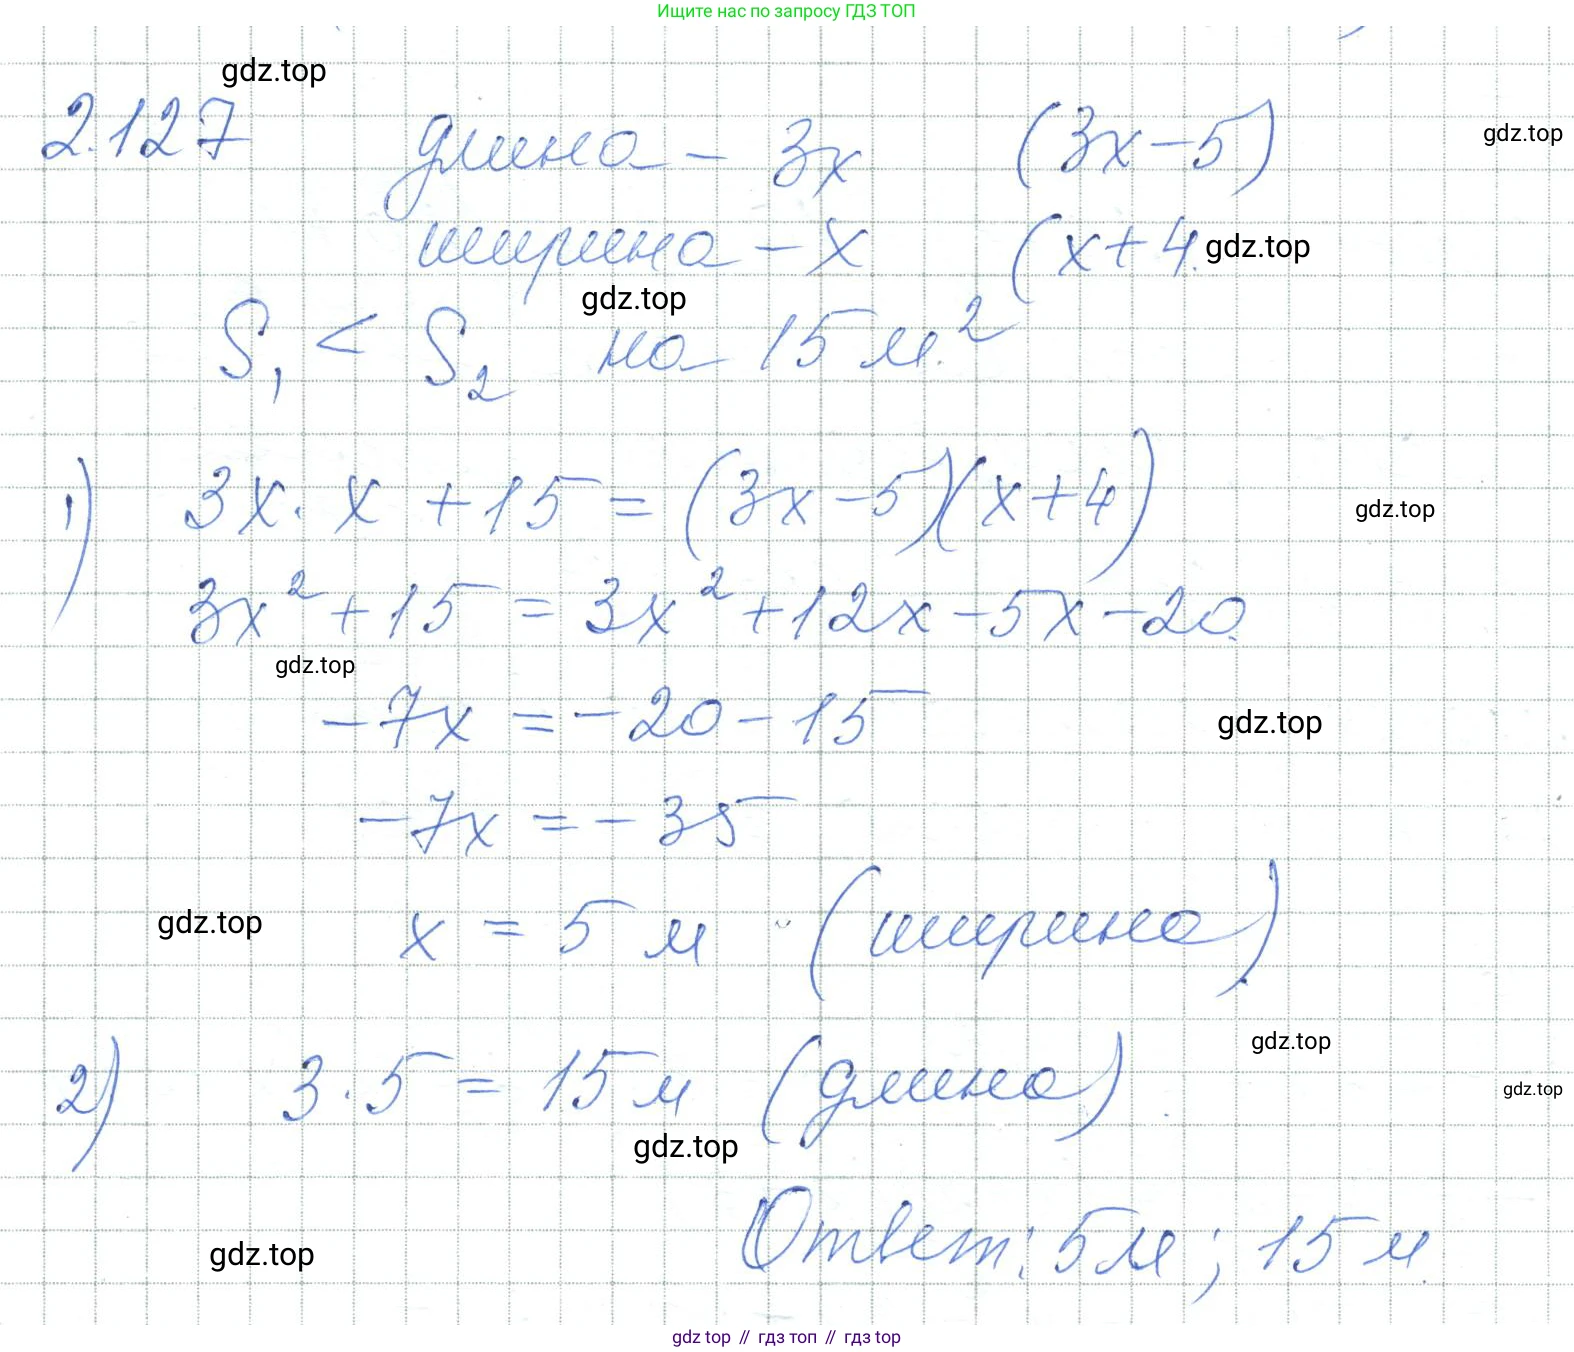 Ищите нас по запросу ГДЗ ТОП
gdz.top
2.127 длина - 3x (3x-5)
gdz.top
ширина - x (x+4
gdz.top
gdz.top
S₁ < S₂ на 15 м²
1) 3x · x + 15 = (3x-5)(x+4)
gdz.top
3x² + 15 = 3x² + 12x - 5x - 20
gdz.top
-7x = -20 - 15
gdz.top
-7x = -35
gdz.top
x = 5 м (ширина)
gdz.top
2) 3 · 5 = 15 м (длина)
gdz.top
gdz.top
Ответ: 5 м; 15 м
gdz.top
gdz top // гдз топ // гдз top